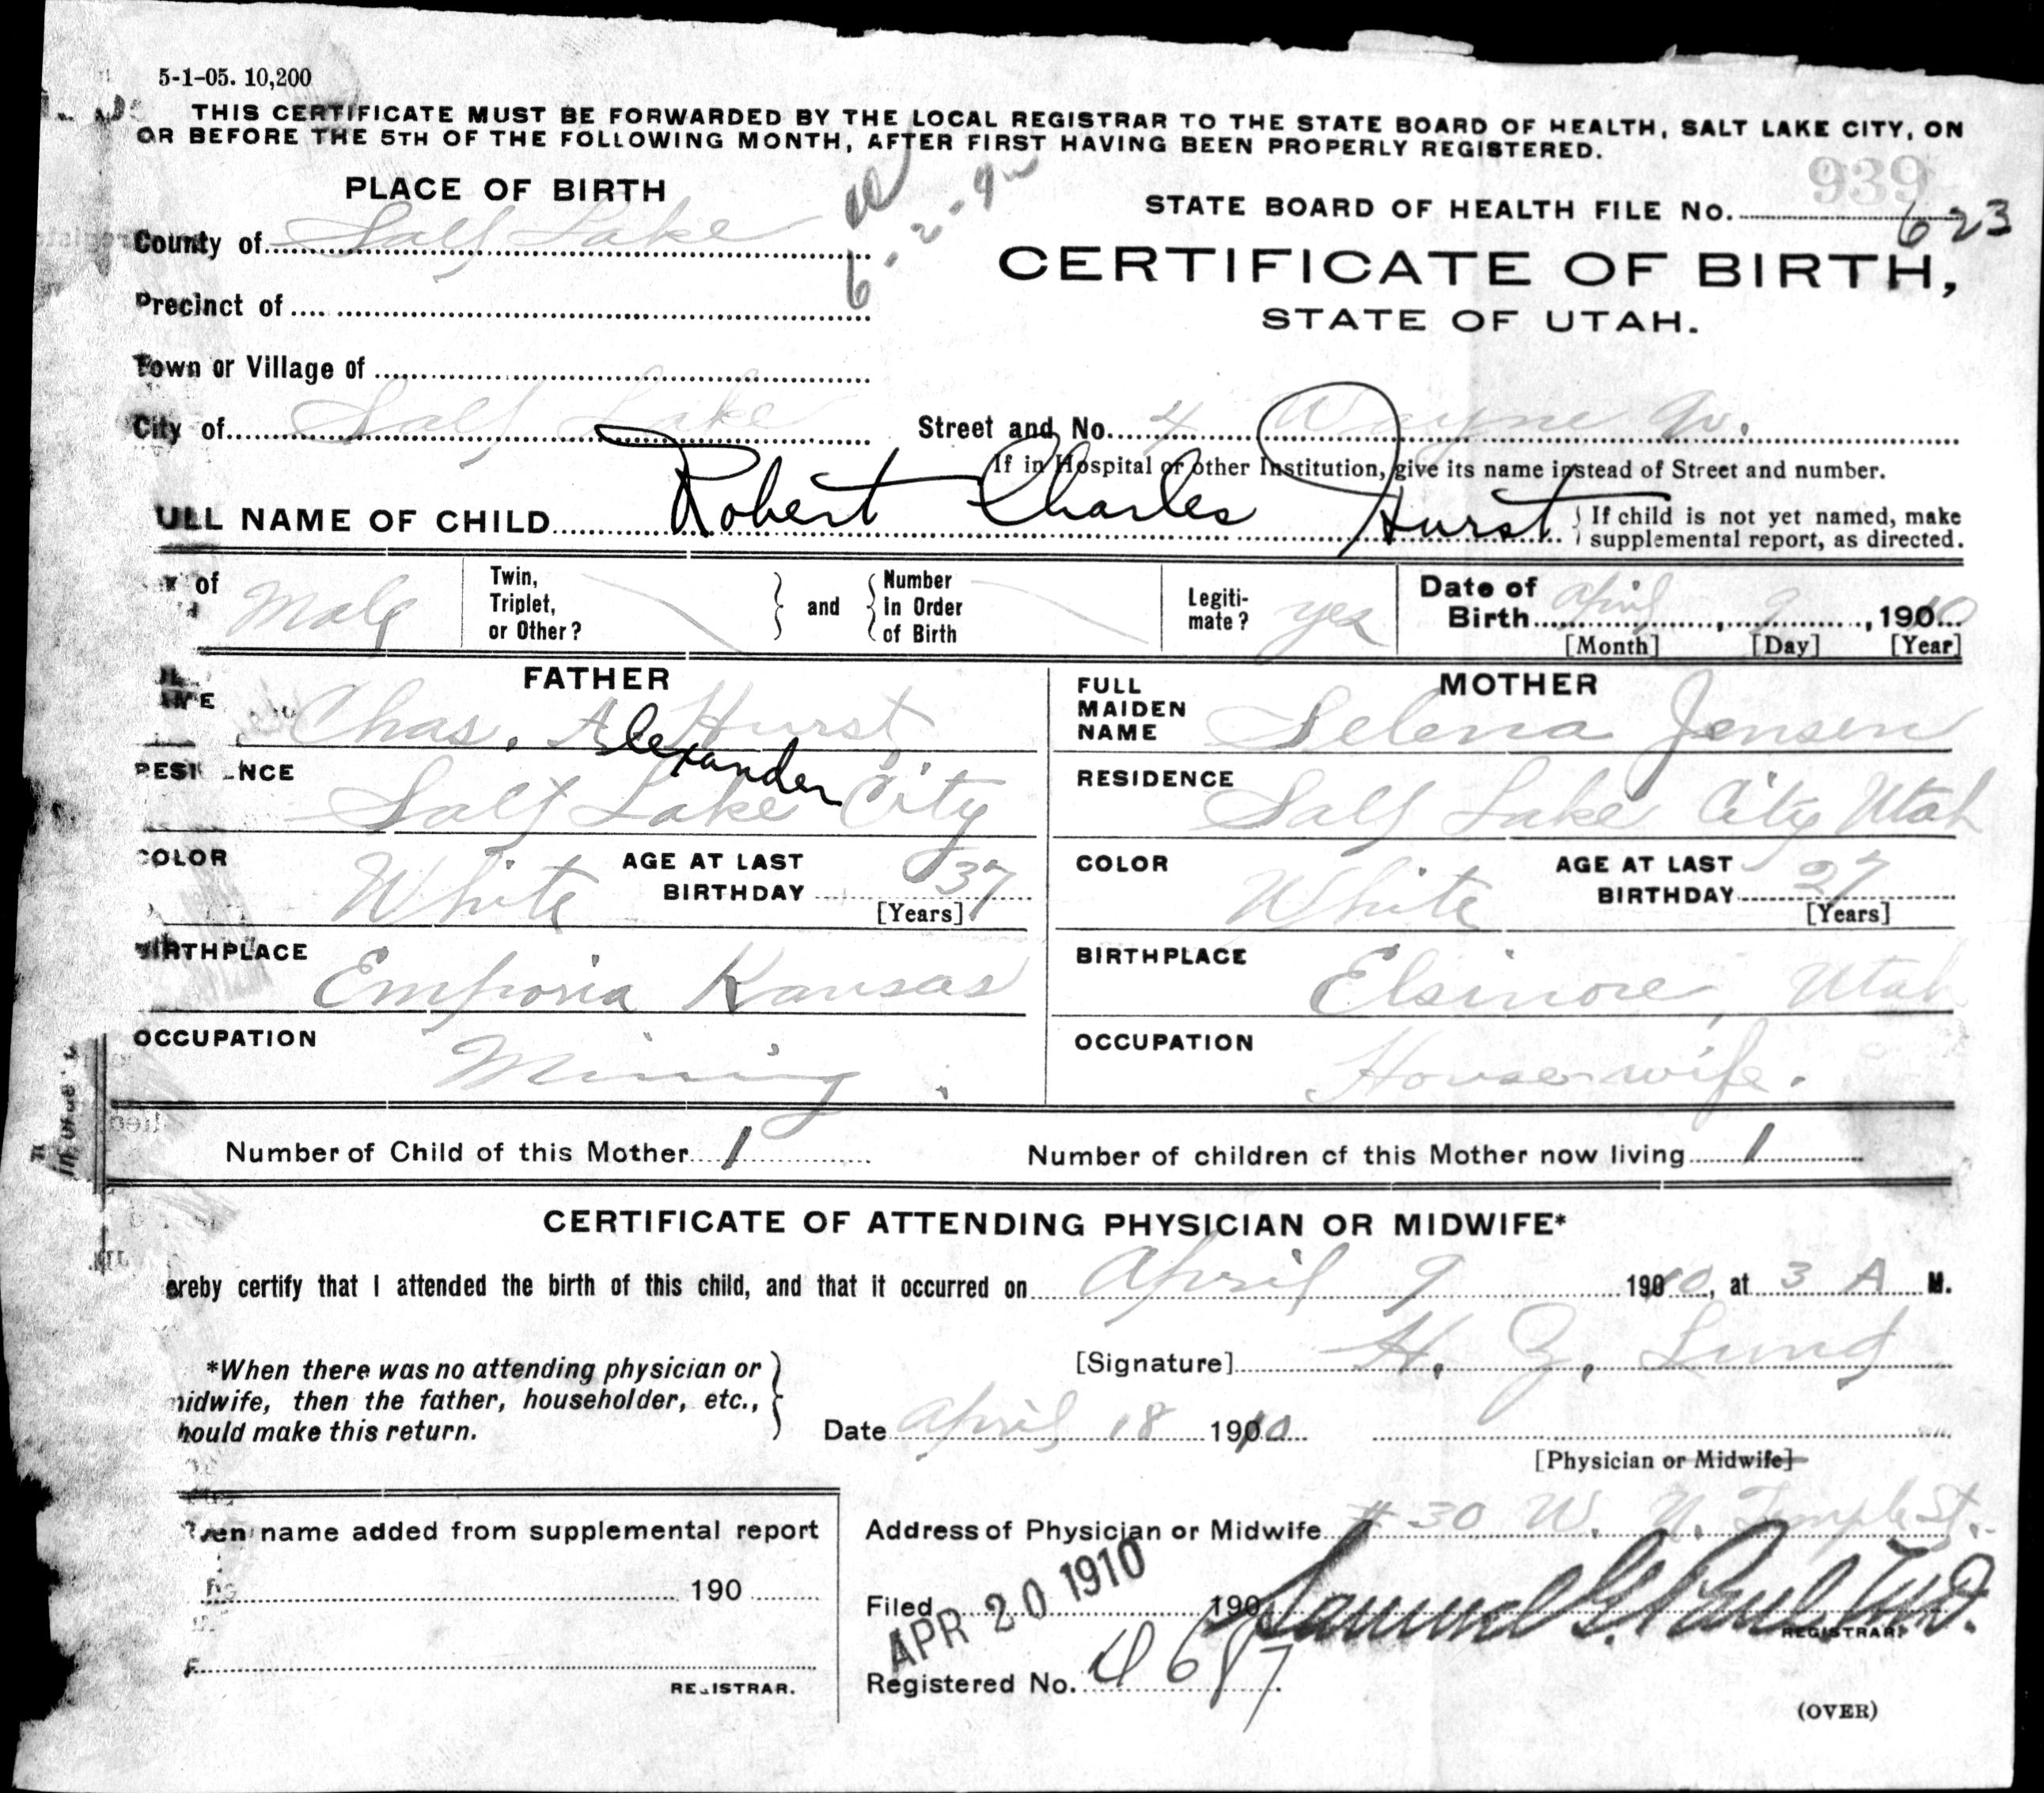 5-1-05. 10,200
THIS CERTIFICATE MUST BE FORWARDED BY THE LOCAL REGISTRAR TO THE STATE BOARD OF HEALTH, SALT LAKE CITY, ON
OR BEFORE THE 5TH OF THE FOLLOWING MONTH, AFTER FIRST HAVING BEEN PROPERLY REGISTERED.
939
PLACE OF BIRTH
STATE BOARD OF HEALTH FILE No. 623
County of Salt Lake
CERTIFICATE OF BIRTH,
Precinct of
STATE OF UTAH.
Town or Village of
City of Salt Lake Street and No. 4 Wayne Av.
If in Hospital or other Institution, give its name instead of Street and number.
ULL NAME OF CHILD Robert Charles Hurst { If child is not yet named, make
supplemental report, as directed.
of Male Twin, Triplet, or Other? } and { Number In Order of Birth Legiti-mate? yes Date of Birth April, 9, 1910
[Month] [Day] [Year]
FATHER MOTHER
Chas. A Hurst FULL MAIDEN NAME Selena Jensen
Alexander
RESI NCE Salt Lake City RESIDENCE Salt Lake City Utah
COLOR White AGE AT LAST BIRTHDAY 37 COLOR White AGE AT LAST BIRTHDAY 27
[Years] [Years]
BIRTHPLACE Emporia Kansas BIRTHPLACE Elsinore, Utah
OCCUPATION Mining. OCCUPATION Housewife.
Number of Child of this Mother 1 Number of children of this Mother now living 1
CERTIFICATE OF ATTENDING PHYSICIAN OR MIDWIFE*
ereby certify that I attended the birth of this child, and that it occurred on April 9 1910, at 3 A M.
*When there was no attending physician or
midwife, then the father, householder, etc.,
hould make this return.
[Signature] H. Z. Lund
Date April 18 1910
[Physician or Midwife]
ven name added from supplemental report
190
REGISTRAR.
Address of Physician or Midwife # 30 W. N. Temple St.
Filed APR 20 1910 190 Samuel G. Paul M.D.
REGISTRAR.
Registered No. 4687
(OVER)